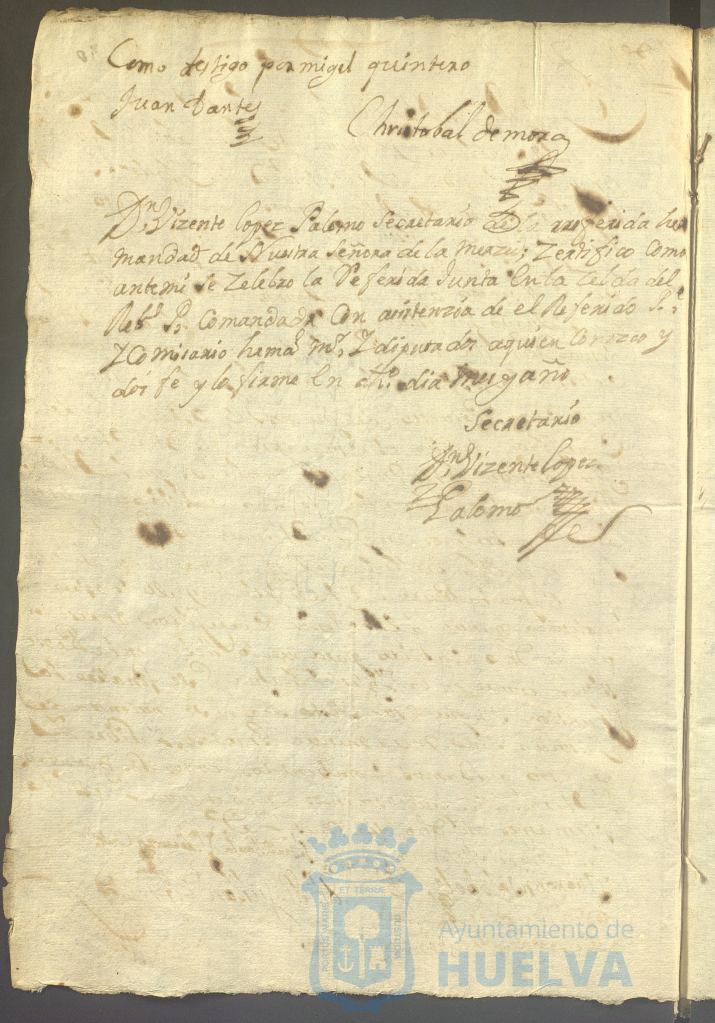 Como testigo por migel quintero
Juan Dantes
Christobal de mora
Dn Vizente lopez Palomo Secretario de la rreferida her
mandad de Nustra Señora de la merzed; Zertifico Como
antemi se Zelebro la Referida Junta En la Zelda del
Rebdo Pe Comandador Con asistenzia de el Referido Pe
y Comisario hermo mr y diputados aquien Conozco y
doi fe y lo firmo En dho dia mes y año
Secretario
Dn Vizente lopez
Palomo
ET TERRÆ
PORTUS MARIS
CUSTODIA
Ayuntamiento de
HUELVA